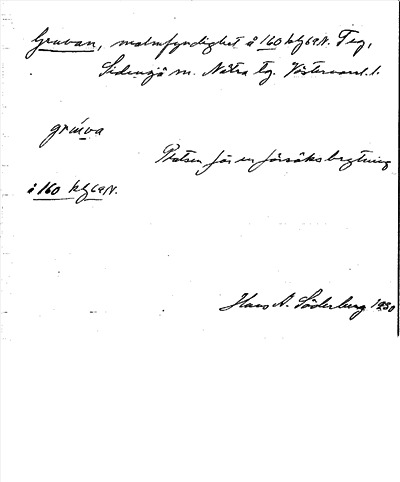 Gruvan, malmfyndighet å 160 kbl 69N. Teg,
Sidensjö sn. Nätra tg. Västernorrl. l.
grúva
Platsen för en försöksbrytning
å 160 kbl 69N.
Hans A. Söderberg 1930